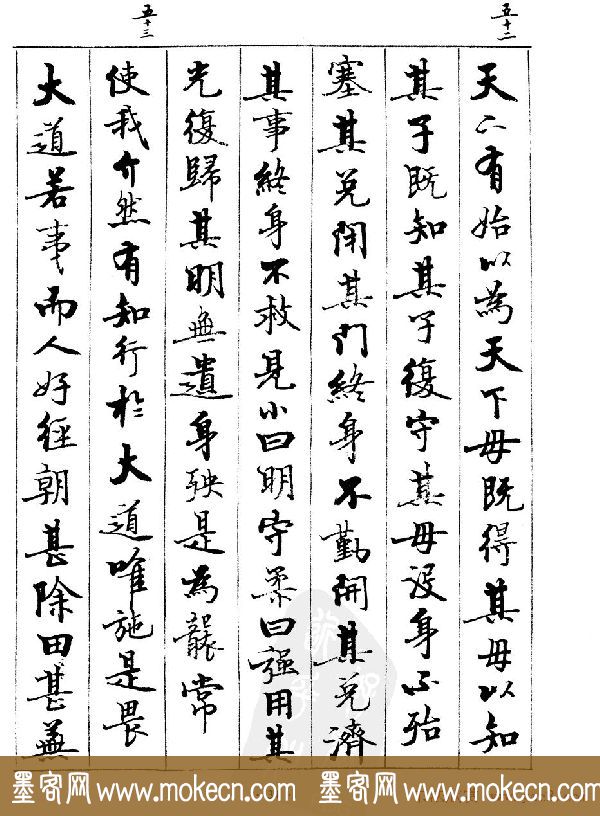 五十二
天下有始以為天下母既得其母以知
其子既知其子復守其母沒身不殆
塞其兌閉其門終身不勤開其兌濟
其事終身不救見小曰明守柔曰强用其
光復歸其明無遺身殃是為襲常
五十三
使我介然有知行於大道唯施是畏
大道若夷而人好徑朝甚除田甚蕪
墨客网 www.mokecn.com 墨客网 www.mokecn.com